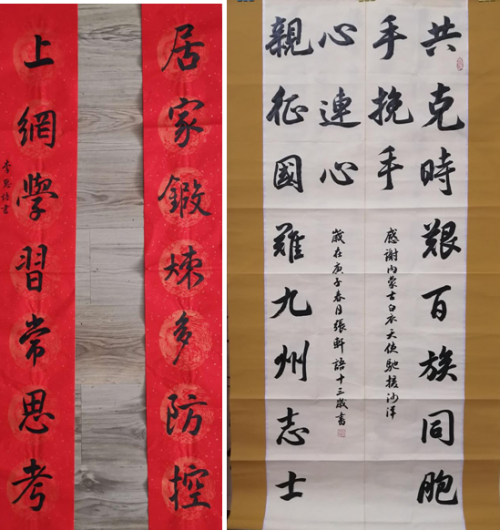 居家鍛煉多防控
上網學習常思考
共克時艱百族同胞
手挽手
感謝内蒙古白衣天使馳援沙洋
心連心
歲在庚子春月張軒語十三歲書
親征國難九州志士